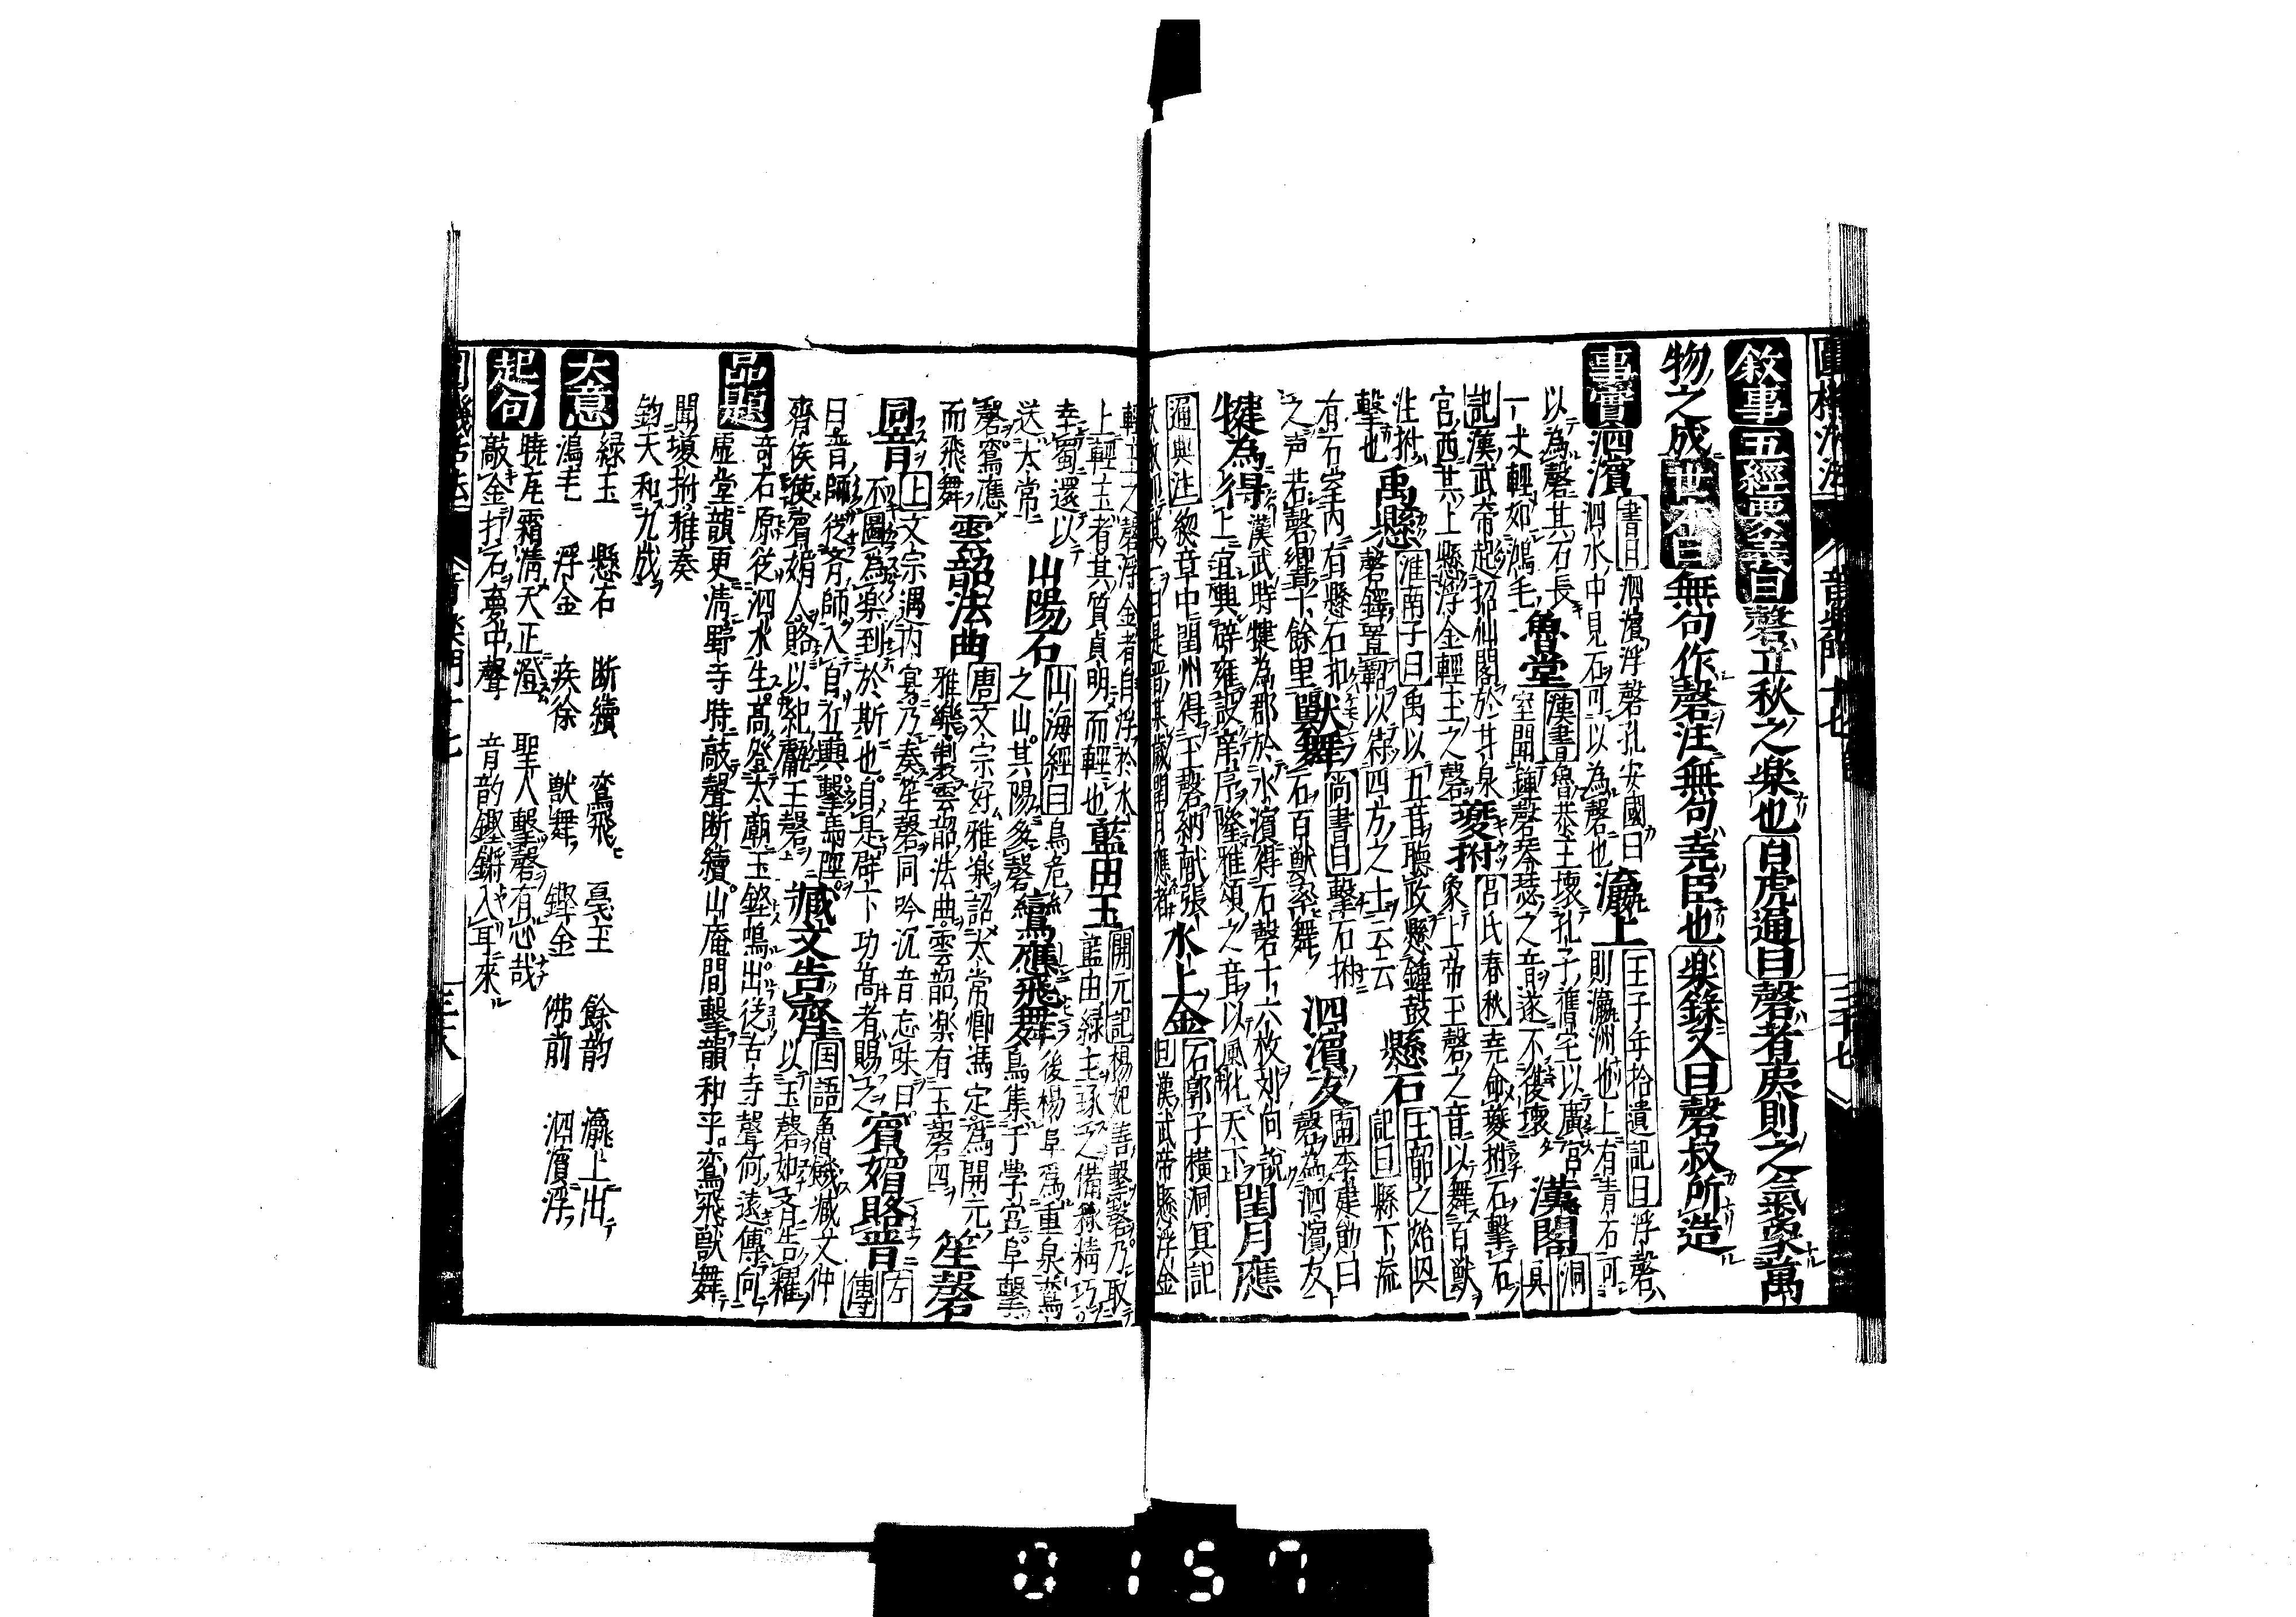 敘事 五經要義曰磬立秋之楽也白虎通曰磬者夷則之氣象萬
物之成世本曰無句作磬注無句尭臣也楽錄又曰磬叔所造
事實 泗濱 書曰泗濱浮磬孔安國曰
泗水中見石可以為磬也 瀛上 王子年拾遺記曰浮磬
則瀛洲也上有青石可
以為磬其石長
一丈輕如鴻毛 魯堂 漢書魯恭王壞孔子舊宅以廣宮
室聞鍾磬琴瑟之音遂不復壞 漢閣 洞
冥
記漢武帝起招仙閣於甘泉
宮西其上懸浮金輕玉之磬 夔拊 呂氏春秋尭命夔拊石擊石
象上帝玉磬之音以舞百獣
注拊
擊也 禹懸 淮南子曰禹以五音聽政懸鍾鼓
磬鐸置鞀以待四方之士云云 懸石 王韶之始興
記曰縣下流
有石室內有懸石扣
之声若磬響十餘里 獸舞 尚書曰擊石拊
石百獣率舞 泗濱友 南李建勛曰
磬為泗濱友
犍為得 漢武時犍為郡於水濱得石磬十六枚刘向說
上宜興辟雍設庠序隆雅頌之音以風化天下 閏月應
通典注黎章中閬州得玉磬納献張
水上金 石郭子橫洞冥記
曰漢武帝懸浮金
輕玉之磬浮金者自浮於水
上輕玉者其質貞明而輕也 藍田玉 開元記楊妃善擊磬乃取
藍田緑玉琢之備極精巧
幸蜀還以
送太常 山陽石 山海經曰鳥危
之山其陽多磬 鸞應飛舞 後楊阜為重泉鸞
鳥集于學宮阜擊
磬鸞應
而飛舞 雲韶法曲 唐文宗好雅楽詔太常卿馮定為開元
雅樂制雲韶法曲雲韶楽有玉磬四 笙磬
同音 上文宗遇內宴乃奏笙磬同吟沉音忘味曰
不圖為楽到於斯也自是群下功高者賜之 賓媚賂晋 左
傳
曰晋師從齊師入自丘輿擊馬陘
齊侯使賓媚人賂以紀甗玉磬 臧文告齊 国語魯饑臧文仲
以玉磬如齊告糴
品題 奇石原從泗水生高登太廟玉鏗鳴出従古寺聲何遠傳向
虛堂韻更清野寺時敲聲断續山庵間擊韻和平鸞飛獣舞
開塤拊雅奏
鈞天和九成
大意 緑玉 懸石 断續 鸞飛 戞玉 餘韵 瀛上出
鴻毛 浮金 疾徐 獣舞 鏗金 佛前 泗濱浮
起句 曉庭霜清天正澄 聖人擊磬有心哉
敲金打石夢中聲 音韵鏗鏘入耳來
0157